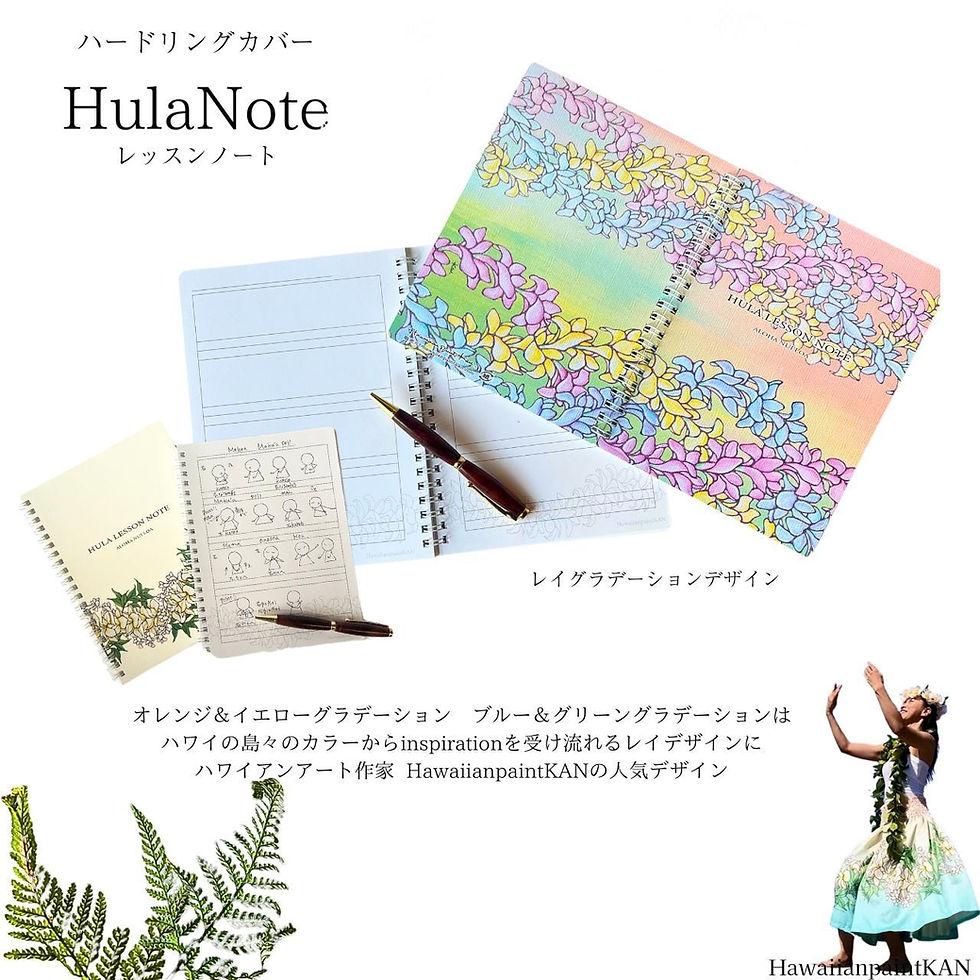 ハードリングカバー
HulaNote
レッスンノート
HULA LESSON NOTE
ALOHA NUI LOA
HawaiianpaintKAN
HULA LESSON NOTE
ALOHA NUI LOA
レイグラデーションデザイン
オレンジ&イエローグラデーション　ブルー&グリーングラデーションは
ハワイの島々のカラーからinspirationを受け流れるレイデザインに
ハワイアンアート作家 HawaiianpaintKANの人気デザイン
HawaiianpaintKAN